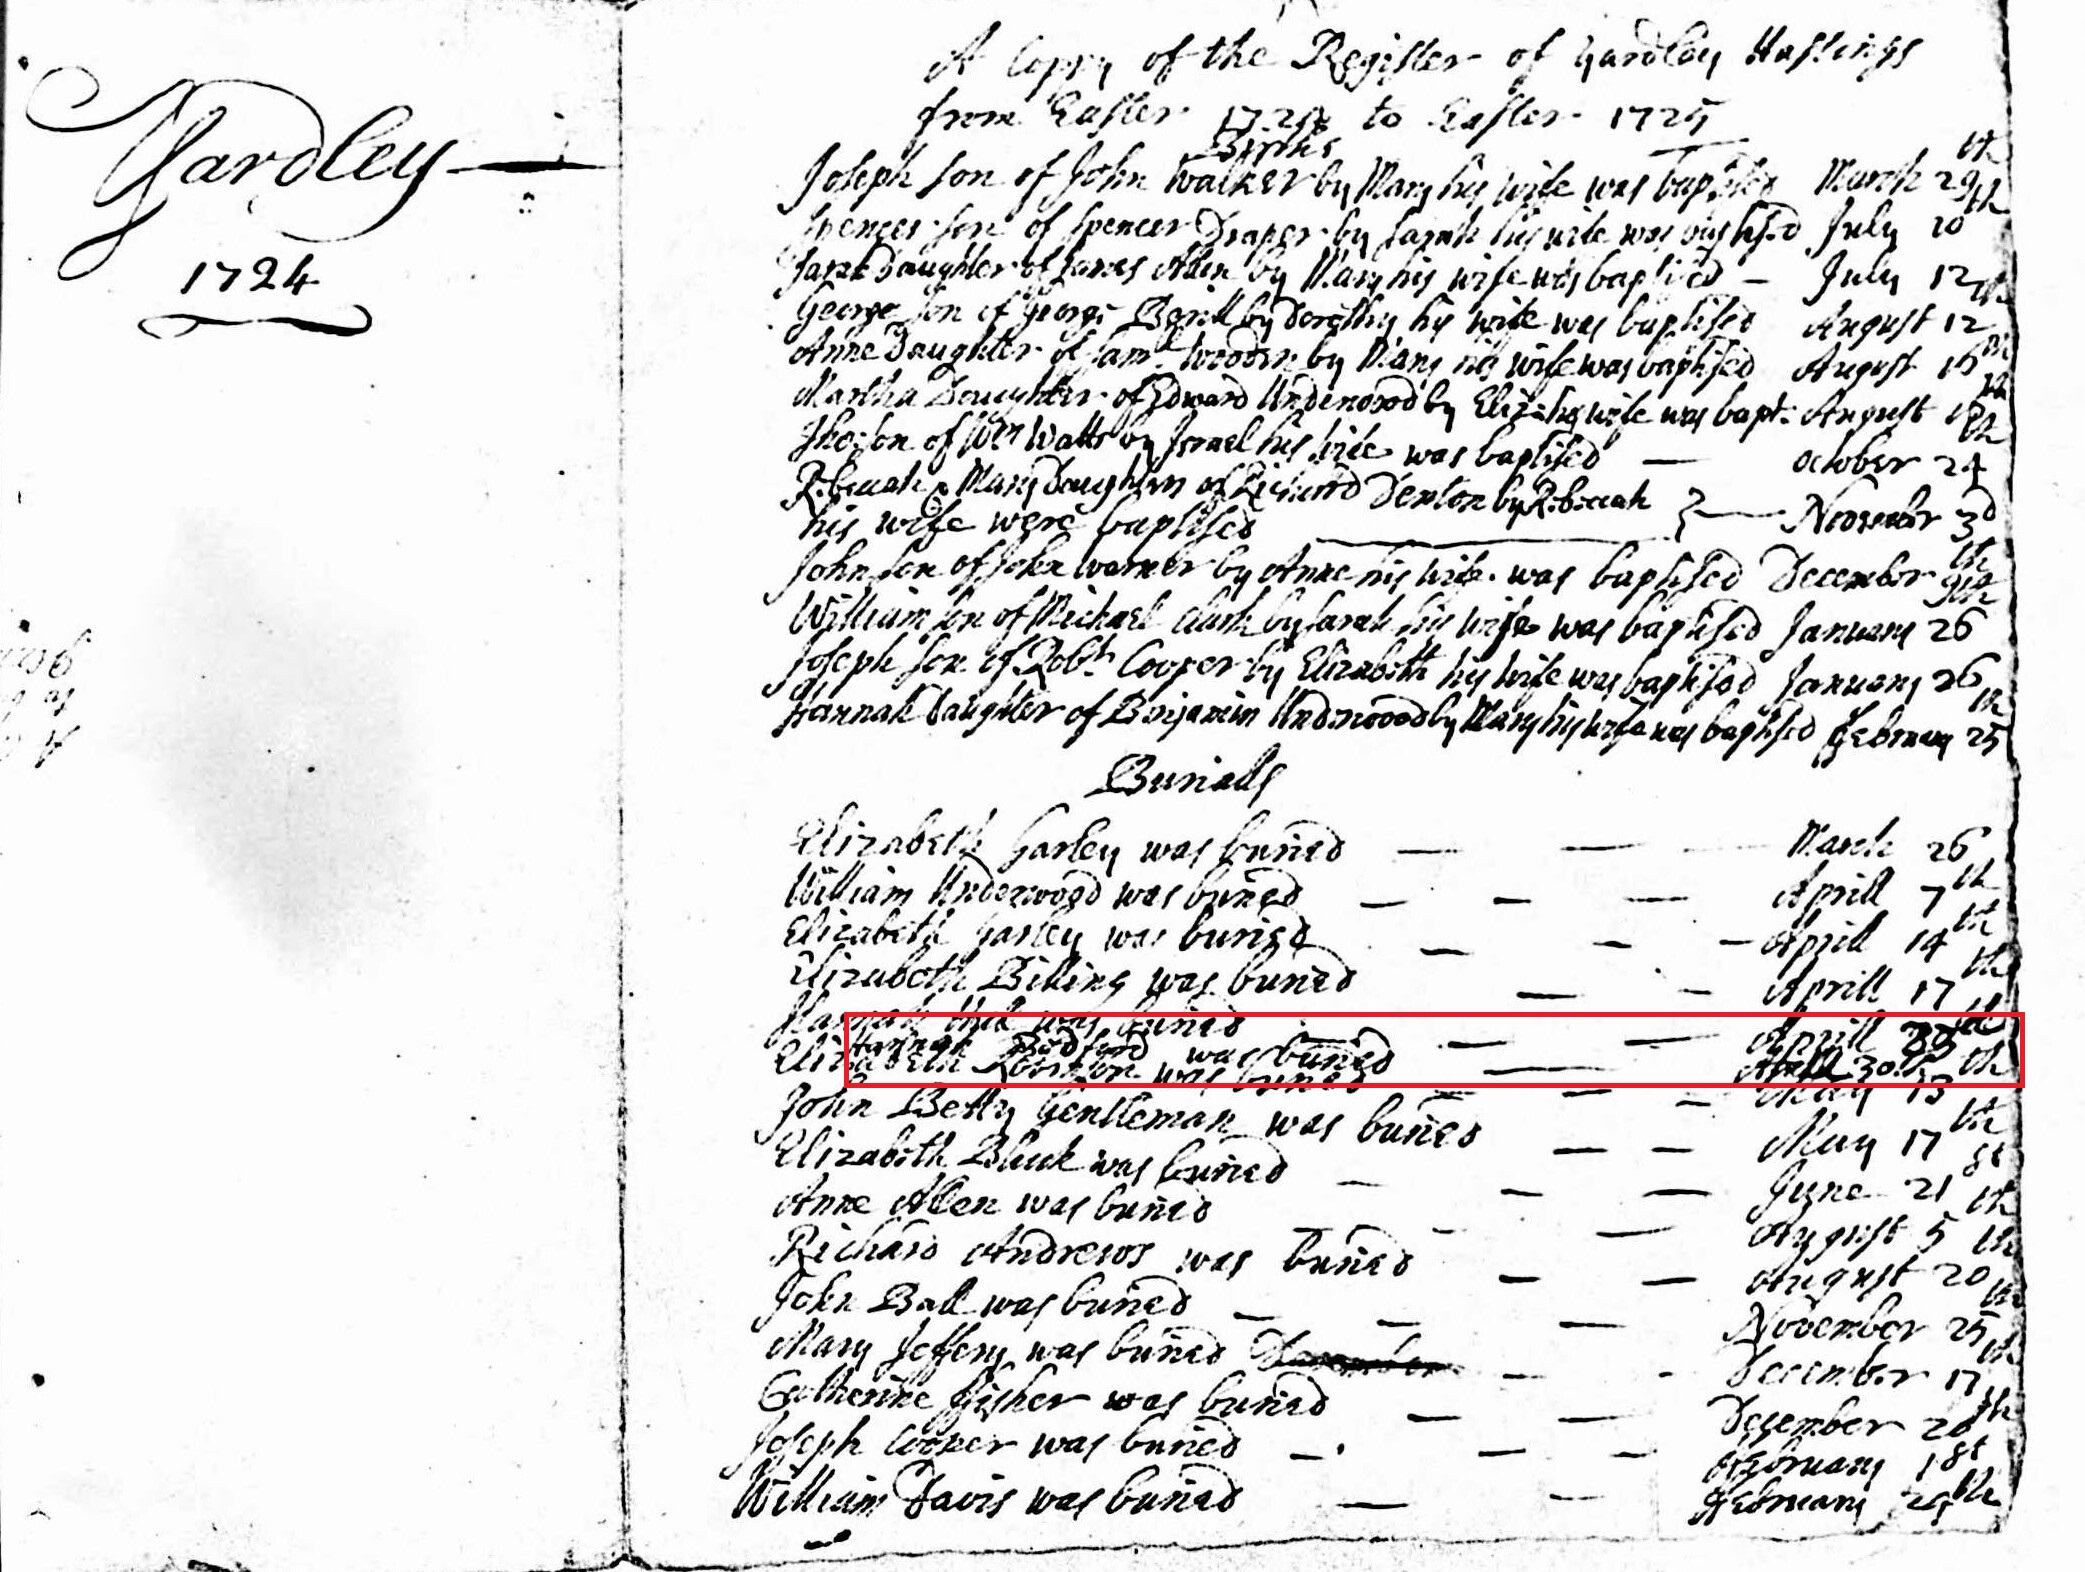 Yardley
1724
A Coppy of the Register of Yardley Hastings
from Easter 1724 to Easter 1725
Births
Joseph son of John Walker by Mary his wife was baptised March 29th
Spencer son of Spencer Draper by Sarah his wife was baptised July 10th
Jane Daughter of James Allen by Mary his wife was baptised – July 12
George son of George Berill by Dorothy his wife was baptised August 12th
Anne Daughter of Sam: Wooden by Mary his wife was baptised August 16th
Martha Daughter of Edward Underwood by Eliz: his wife was bapt: August
Tho: son of Wm Watts by Israel his wife was baptised — October 24th
Rebecah & Mary Daughters of Richard Denton by Rebecah
his wife were baptised — November 3d
John son of John Warner by Anne his wife was baptised December 9th
William son of Michael Clark by Sarah his wife was baptised January 26th
Joseph son of Robt Cooper by Elizabeth his wife was baptised January 26
Hannah Daughter of Benjamin Underwood by Mary his wife was baptised ffebruary 25th
Burialls
Elizabeth Garley was buried — — — March 26
William Underwood was buried — – — Aprill 7th
Elizabeth Garley was buried – – – Aprill 14th
Elizabeth Billing was buried — – Aprill 17th
Hannah was buried — — Aprill
Hannah Bedford was buried — Aprill 30th
Elizabeth Robinson was buried — – – May 13th
John Betty Gentleman was buried – – May 17th
Elizabeth Black was buried – – — June 21st
Anne Allen was buried — - — August 5th
Richard Andrews was buried – — August 20th
John Ball was buried – – — November 25th
Mary Jeffery was buried December – - December 17th
Catherine ffisher was buried – — December 20th
Joseph Cooper was buried – – – ffebruary 1st
William Davis was buried — – ffebruary